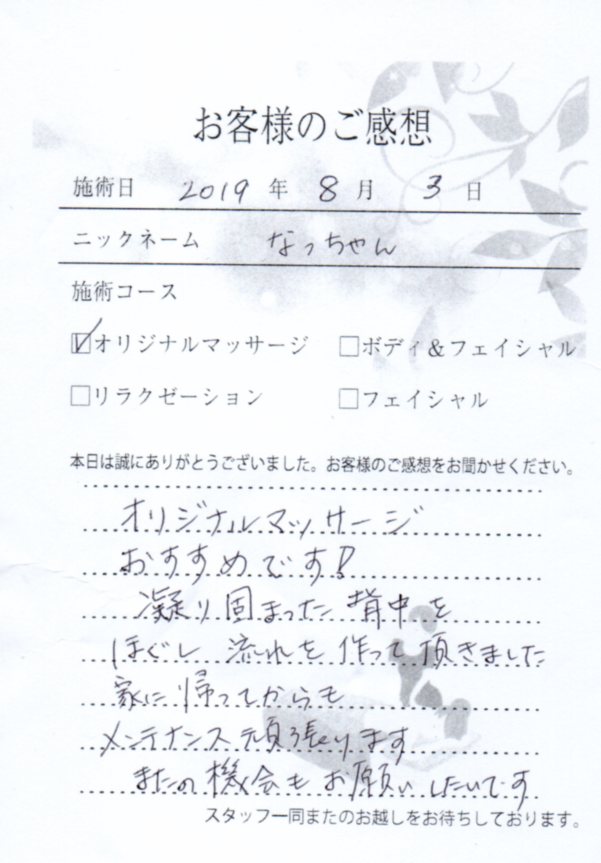 お客様のご感想
施術日 2019 年 8 月 3 日
ニックネーム なっちゃん
施術コース
☑オリジナルマッサージ □ボディ&フェイシャル
□リラクゼーション □フェイシャル
本日は誠にありがとうございました。お客様のご感想をお聞かせください。
オリジナルマッサージ
おすすめです!
凝り固まった背中を
ほぐし 流れを作って頂きました
家に帰ってからも
メンテナンス頑張ります
またの機会もお願いしたいです
スタッフ一同またのお越しをお待ちしております。